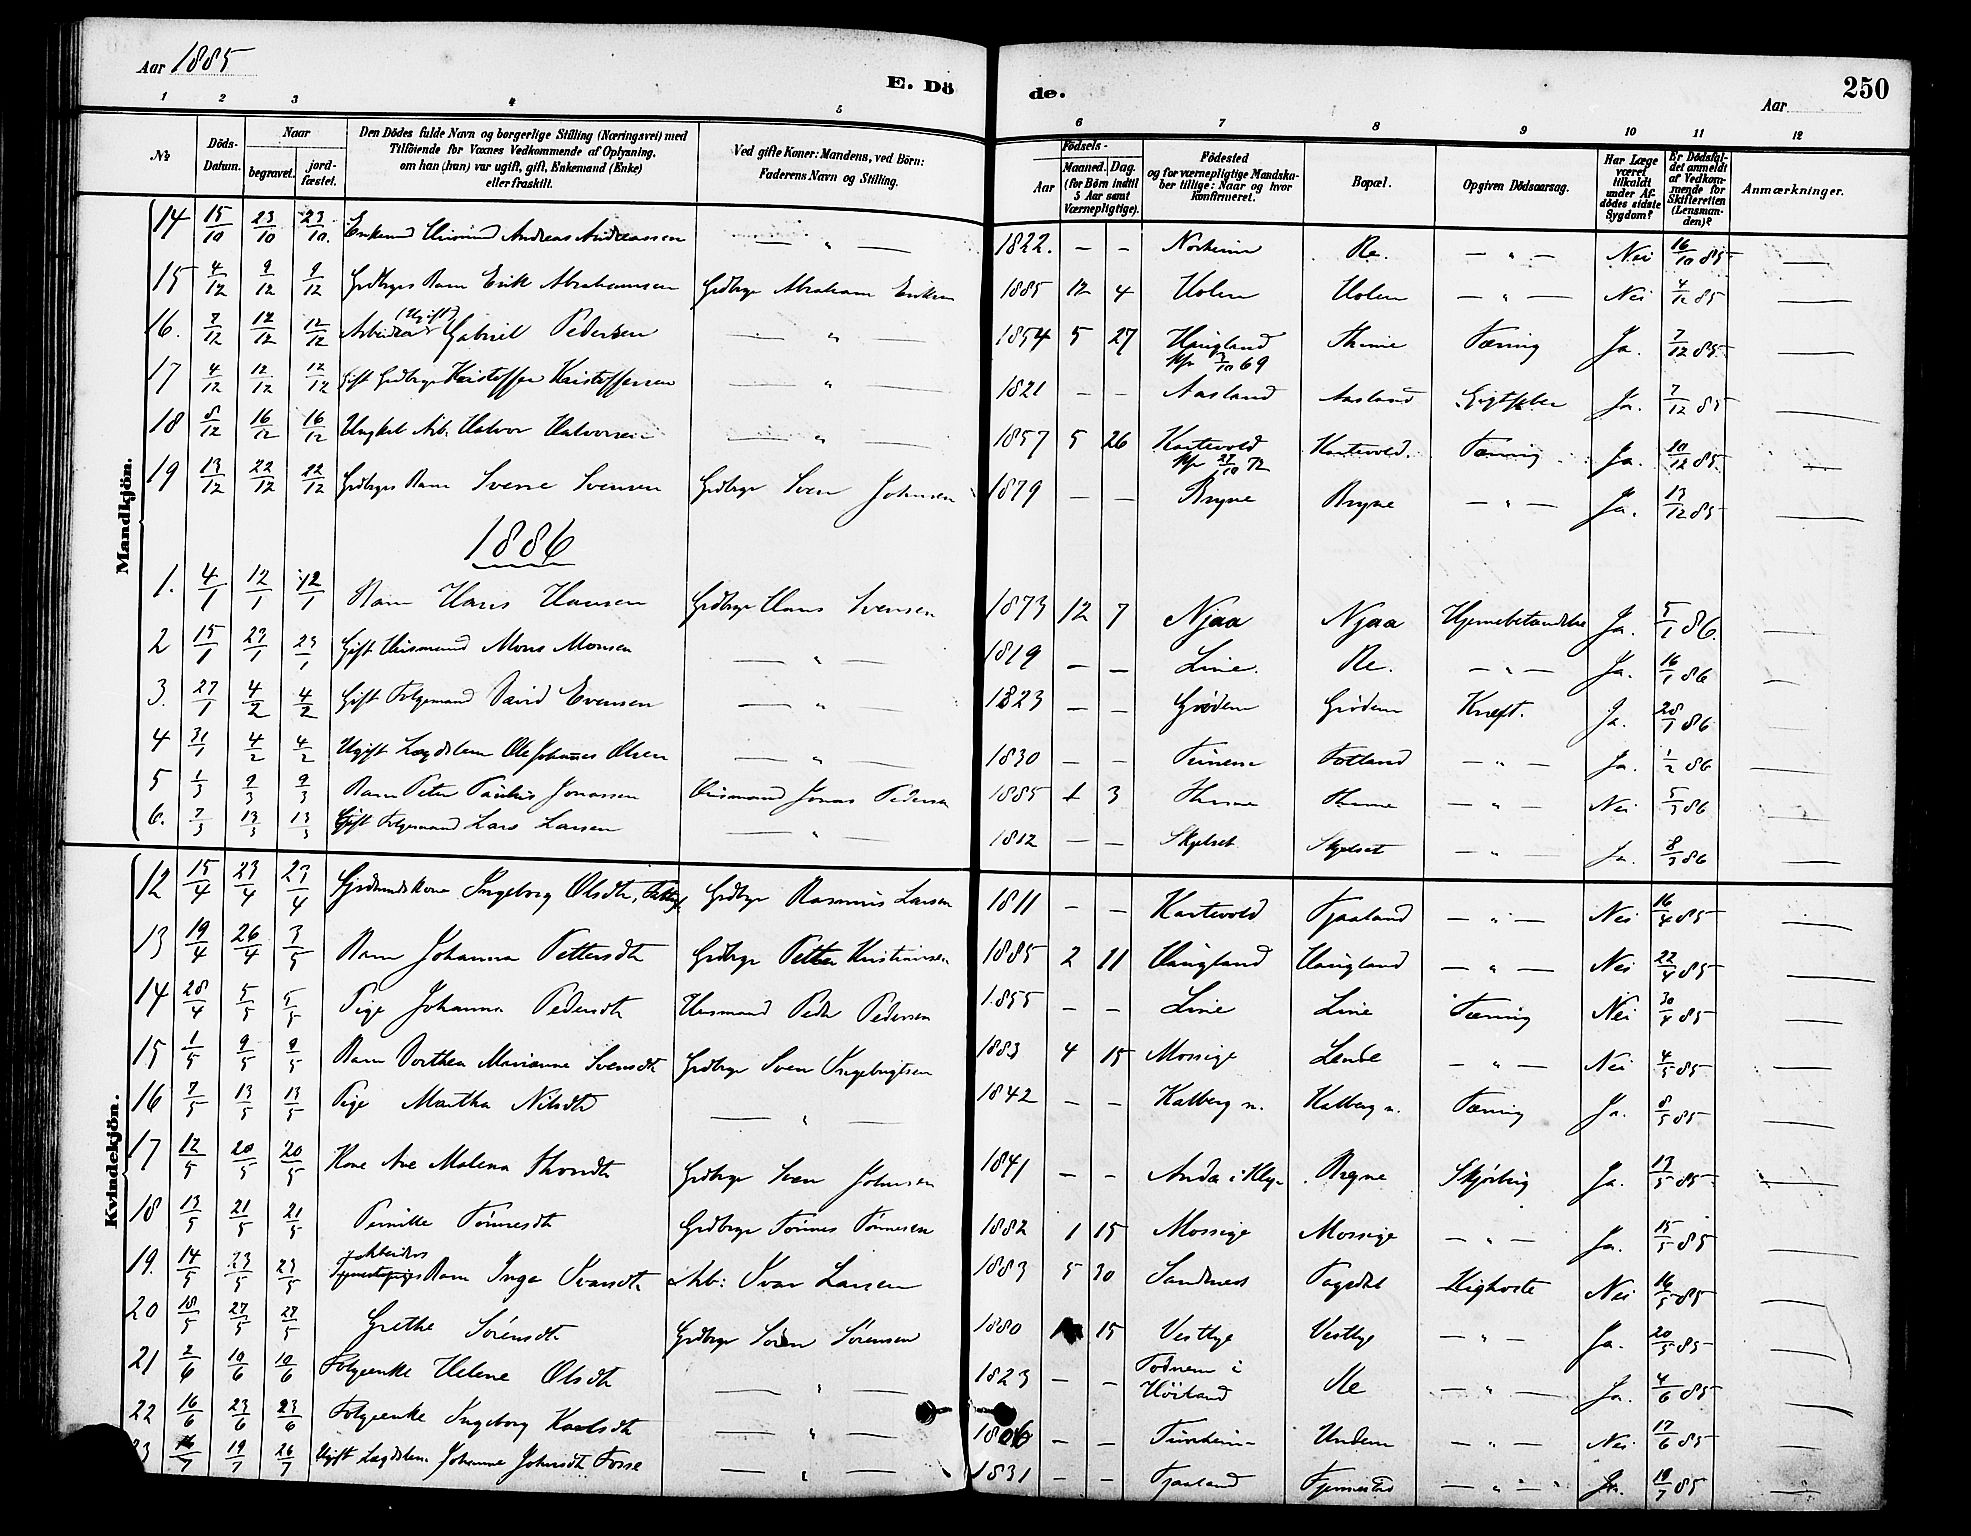 Aar 1885
E. Dö de.
Aar
250
1 2 3 4 5 6 7 8 9 10 11 12
№
Döds-Datum.
Naar
begravet.
jord-fæstet.
Den Dödes fulde Navn og borgerlige Stilling (Næringsvei) med
Tilföiende for Voxnes Vedkommende af Oplysning,
om han (hun) var ugift, gift, Enkemand (Enke)
eller fraskilt.
Ved gifte Koner: Mandens, ved Börn:
Faderens Navn og Stilling.
Födsels-
Aar
Maaned. Dag.
(for Börn indtil
5 Aar samt
Værnepligtige).
Födested
og for værnepligtige Mandska-
ber tillige: Naar og hvor
konfirmeret.
Bopæl.
Opgiven Dödsaarsag.
Har Læge
været
tilkaldt
under Af-
dödes sidste
Sygdom?
Er Dödsfal-
det anmeldt
af Vedkom-
mende for
Skifteretten
(Lensman-
den)?
Anmærkninger.
Mandkjön.
14 15/10 23/10 23/10. Andreas Andreassen — " — 1822. — — Norheim Re. — " — Nei 16/10 85 —
15 4/12 9/12 9/12 Grdbrgs Barn Erik Abrahamsen Grdbrgr Abraham Eriksen 1885 12 4 Holen Holen — " — Nei 4/12 85 —
16. 7/12 12/12 12/12 Arbeider (Ugift) Gabriel Pedersen — " — 1854 5 27 Haugland 3/10 69 Thime Tæring Ja. 7/12 85 —
17 4/12 12/12 12/12 Gift Grdbrgr Kristoffer Kristoffersen — " — 1821 — — Aasland Aasland Gigtfeber Ja. 7/12 85 —
18 8/12 16/12 16/12 Ungkel Arb. Halvor Halvorsen — " — 1857 5 26 Kartevold 27/10 72 Kartevold. Tæring Ja. 10/12 85. —
19 13/12 22/12 22/12 Grdbrgrs Barn Sverre Svensen Grdbrgr Sven Johnsen 1879 — — Bryne Bryne — " — Ja. 13/12 85 —
1886
1. 4/1 12/1 12/1 Barn Hans Hansen Grdbrgr Hans Svensen 1873 12 7 Njaa Njaa Hjernebetændelse Ja. 5/1 86. —
2 15/1 23/1 23/1 Gift Husmand Mons Monsen — " — 1819 — — Line. Re. — " — Ja. 16/1 86 —
3. 27/1 4/2 4/2 Gift Folgemand David Evensen — " — 1823 — — Grödem Grödem Kræft. Ja. 28/1 86 —
4 31/1 4/2 4/2 Ugift Lægdslem Ole Johannes Olsen — " — 1830 — — Fotland — " — Ja. 1/2 86 —
5 1/3 9/3 9/3 Barn Peter Jonassen Husmand Jonas Pedersen 1885 1 3 Thime Thime — " — Nei 5/3 86 —
6. 7/3 13/3 13/3 Gift Folgemand Lars Larsen — " — 1812 — — Skjelset Skjelset — " — Ja. 8/3 86 —
Kvindekjön.
12 15/4 23/4 23/4 Gjrdmandskone Ingeborg Olsdtr, Grdbrgr Rasmus Larsen 1811 — — Kartevold Fjaaland — " — Nei 16/4 85 —
13 19/4 26/4 3/5 Barn Johanna Pettersdtr Grdbrgr Petter Kristiansen 1885 2 11 Haugland Haugland — " — Nei 22/4 85 —
14 28/4 5/5 5/5 Pige Johanna Pedersdtr Husmand Peder Pedersen 1855 — — Line Line Tæring Nei 30/4 85 —
15 1/5 9/5 9/5 Barn Dorthea Marianne Svensdtr Grdbrgr Sven Ingebrigtsen 1883 4 15 Mossige Lende — " — Nei 4/5 85 —
16 7/5 13/5 13/5 Pige Martha Nilsdtr — " — 1842 — — Kalberg n. Kalberg n. Tæring Ja. 8/5 85 —
17 12/5 20/5 20/5 Kone Ane Malena Thorsdtr Grdbrgr Sven Johnsen 1841 — — Anda i Klep Bryne Skjörbug Ja. 13/5 85 —
18 13/5 21/5 21/5 Pernille Tönnesdtr Grdbrgr Tönnes Tönnesen 1882 1 15 Mossige Mossige — " — Ja. 15/5 85 —
19. 14/5 23/5 23/5 Arbeiders Barn Inga Svarsdtr Arb: Svar Larsen 1883 5 30 Sandnes Fagrdal Kighoste Nei 16/5 85 —
20 18/5 27/5 27/5 Grethe Sörensdtr Grdbrgr Sören Sörensen 1880 15 Vestlye Vestlye — " — Ja. 20/5 85 —
21 2/6 10/6 10/6 Folgeenke Helene Olsdtr — " — 1823 — — Fodnem i Höiland Re — " — Ja. 4/6 85 —
22 16/6 23/6 23/6 Folgeenke Ingeborg Karlsdtr — " — 1806 — — Tunheim Undem — " — Nei 17/6 85 —
23 16/7 19/7 26/7 Ugift Lægdslem. Johanne Johnsdtr Fosse — " — 1831 — — Fjaaland Fjermestad — " — Ja. 19/7 85 —